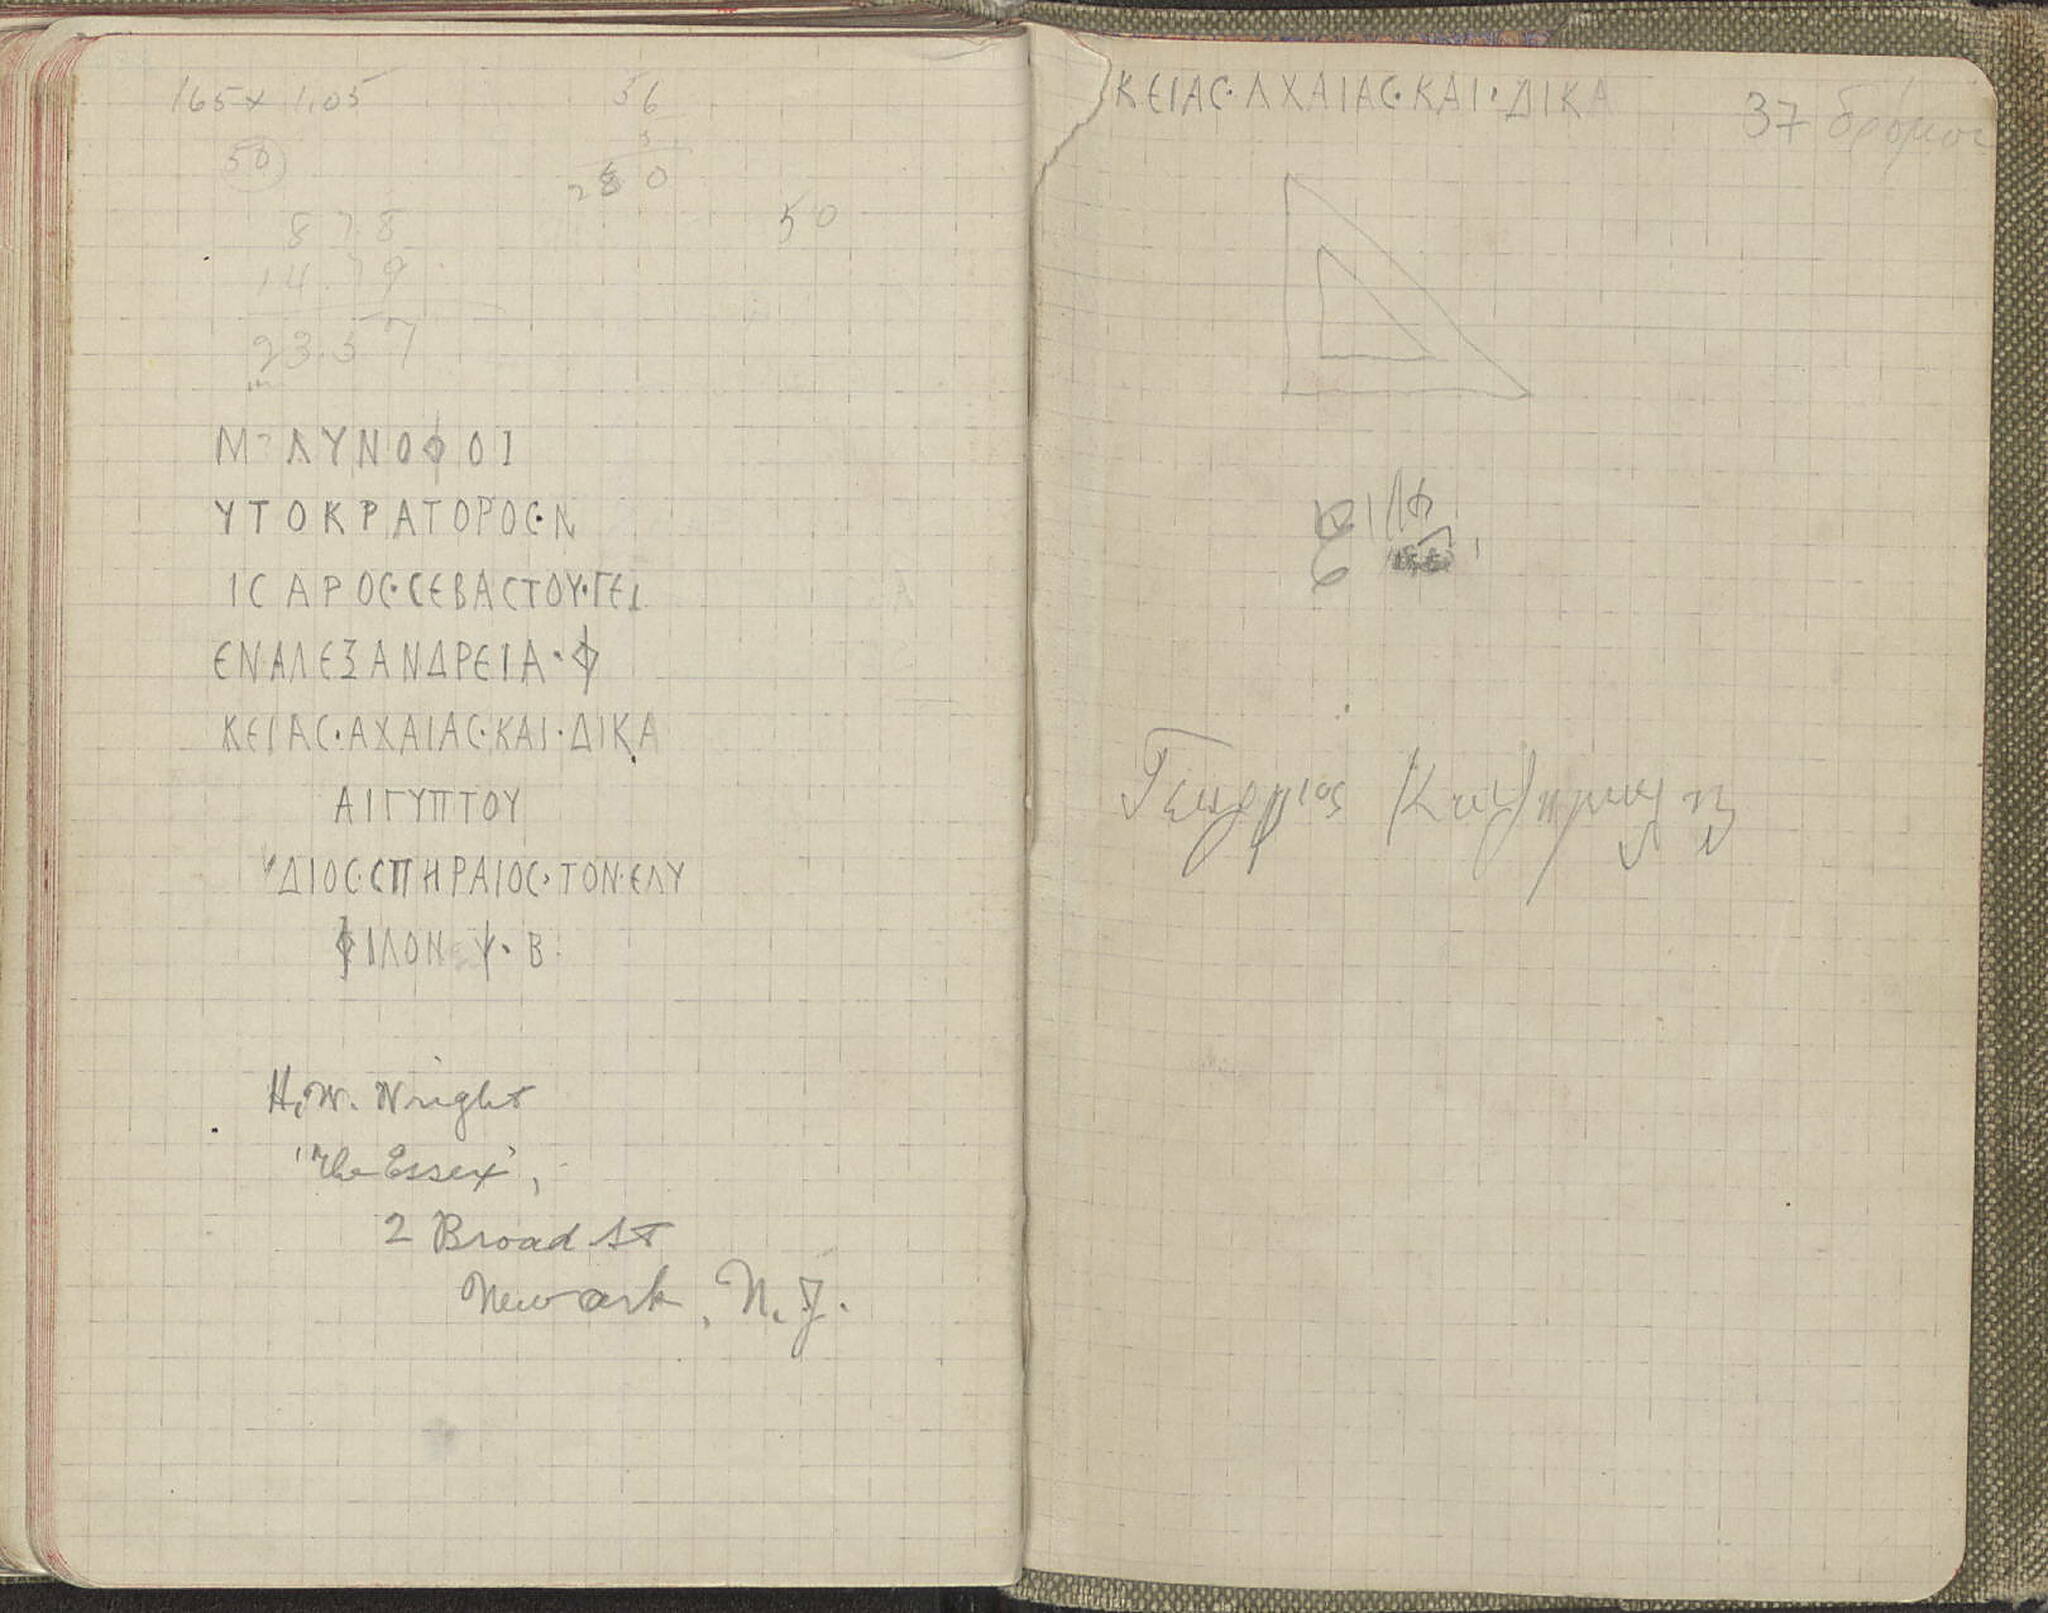 165 x 1.05
56
5
280
50
50
8 78
14 79
23.57
Μ ΛΥΝΟΦΟΙ
ΥΤΟΚΡΑΤΟΡΟϹ·Ν
ΙϹΑΡΟϹ·ϹΕΒΑϹΤΟΥ·ΓΕΙ
ΕΝΑΛΕΞΑΝΔΡΕΙΑ·Φ
ΚΕΙΑϹ·ΑΧΑΙΑϹ·ΚΑΙ·ΔΙΚΑ
ΑΙΓΥΠΤΟΥ
ΥΔΙΟϹ·ϹΠΗΡΑΙΟϹ·ΤΟΝ·ΕΛΥ
ΦΙΛΟΝ Ψ·Β
H. W. Wright
'The Essex',
2 Broad St
Newark, N. J.
ΚΕΙΑϹ·ΛΧΑΙΑϹ·ΚΑΙ·ΔΙΚΑ
37 δρόμοι
Γεώργιος